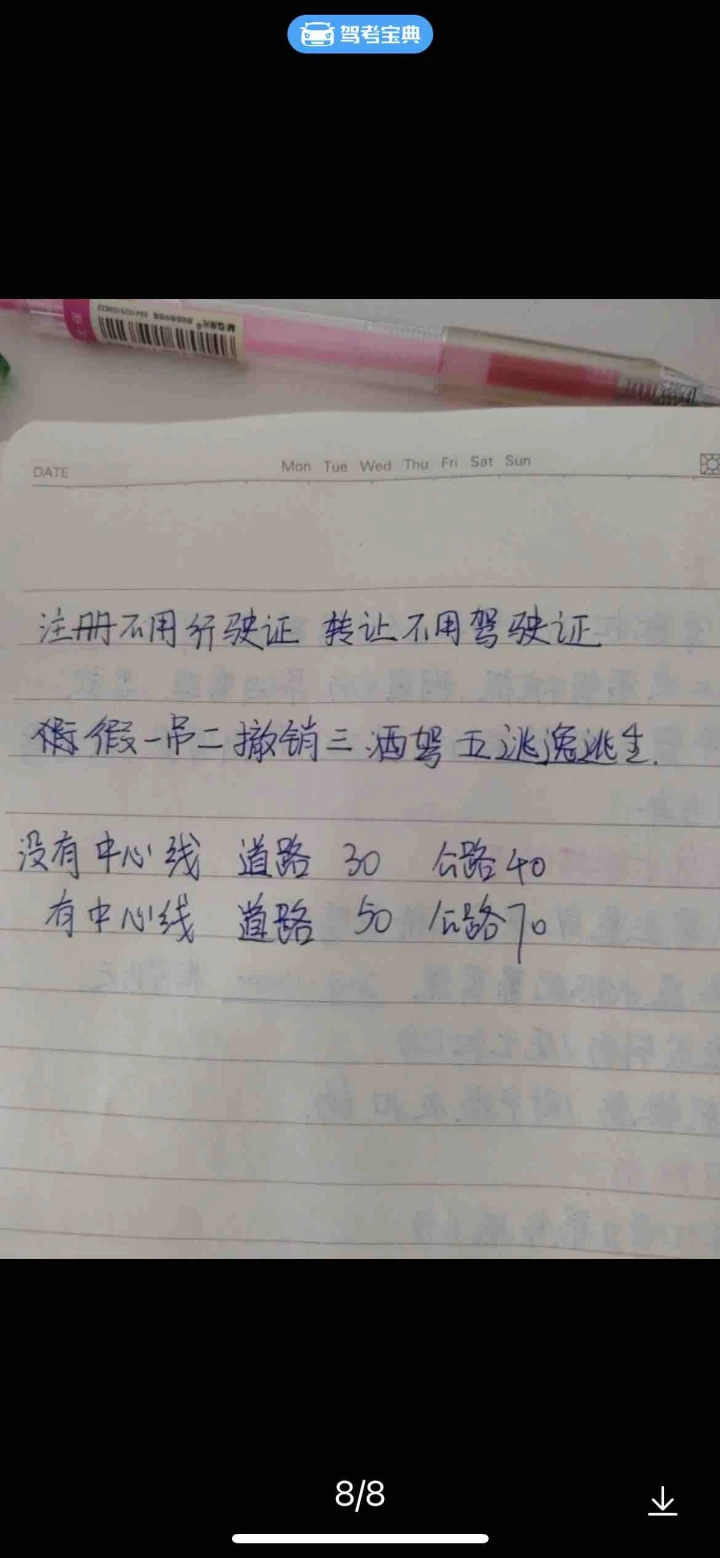 驾考宝典
DATE Mon Tue Wed Thu Fri Sat Sun
注册不用行驶证 转让不用驾驶证
假一吊二撤销三 酒驾五逃逸逃生.
没有中心线 道路 30 公路40
有中心线 道路 50 公路70
8/8